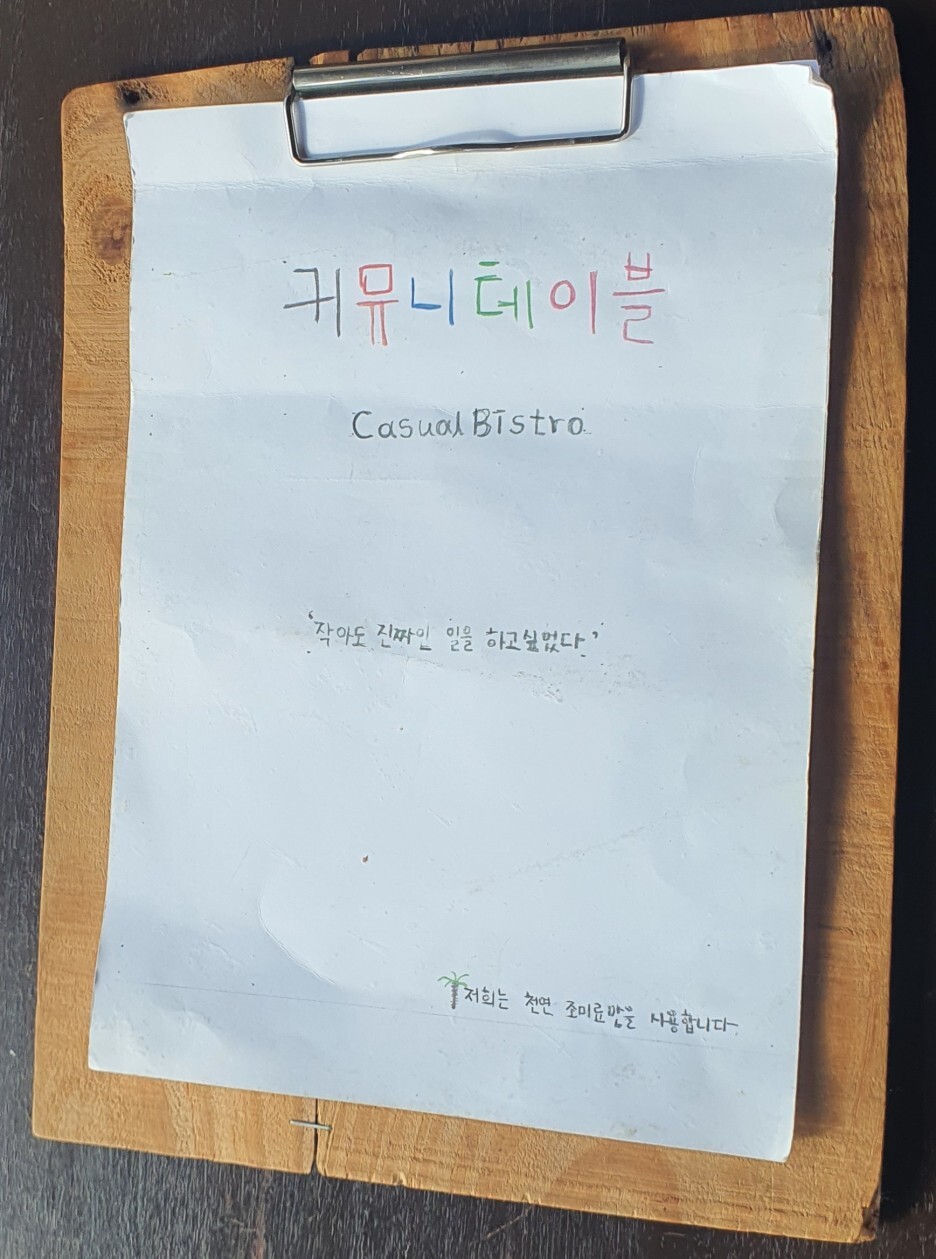 귀뮤니테이블
Casual Bistro
'작아도 진짜인 일을 하고싶었다.'
저희는 천연 조미료만을 사용합니다